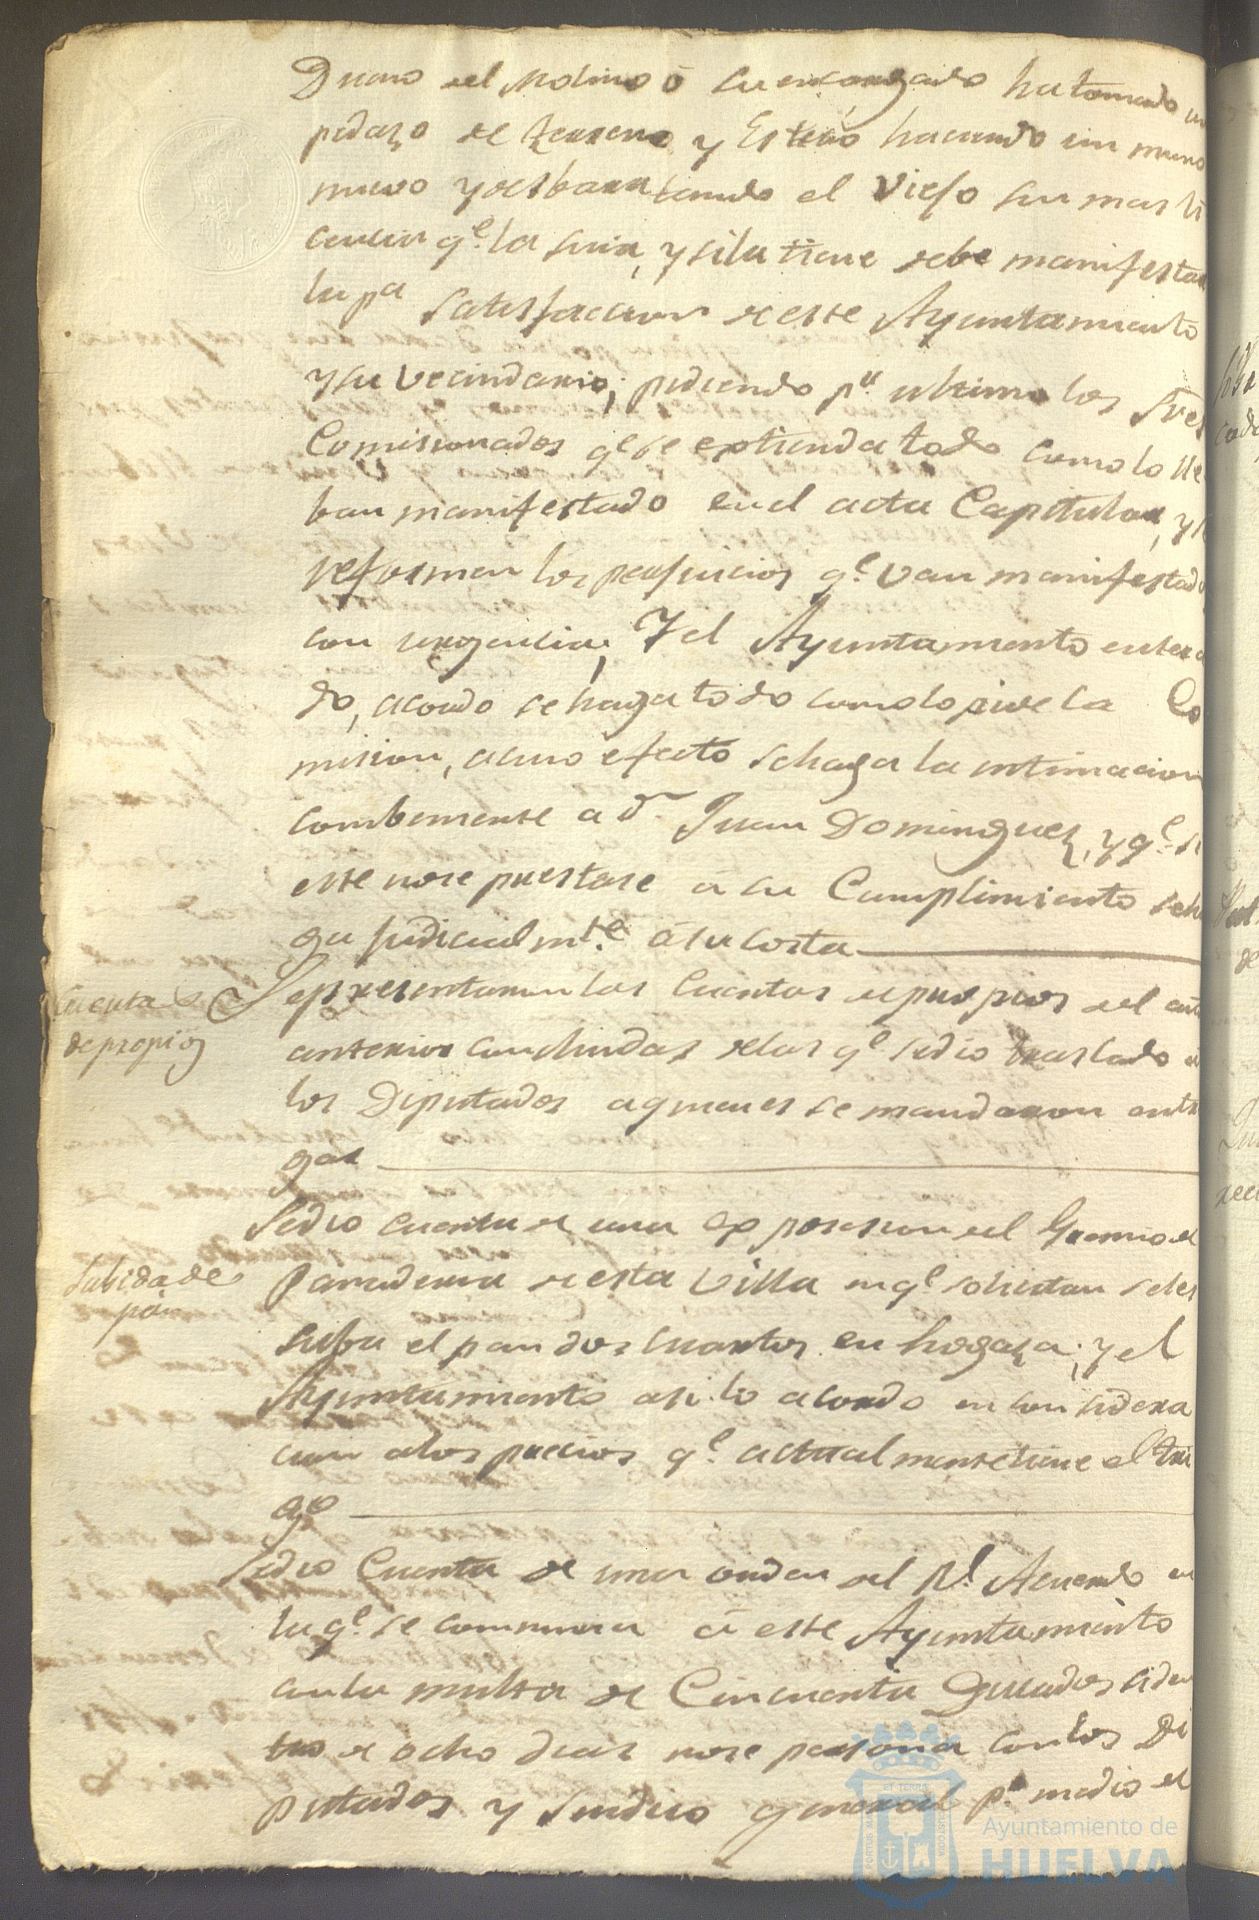 Dueno del Molino ó su encargado ha tomado un
pedazo de terreno y Estero haciendo un muro
nuevo y desbaratando el viejo sin mas li
cencia qe. la suia, y si la tiene debe manifestar
la pa satisfaccion de este Ayuntamiento
y su vecindario; pidiendo pr. ultimo los Sres
Comisionados qe. se extienda todo como lo lle
ban manifestado en el acta Capitular, y se
reforman los perjuicios qe. van manifestado
con urgencia; Y el Ayuntamiento entera
do, acordo se haga todo como lo pide la Co
mision, a cuio efecto se haga la intimacion
combeniente a dn Juan Dominguez, y qe. si
este no se prestase á su Cumplimiento se ha
ga judicialmte. á su costa
Cuentas
de propios
Se presentaron las Cuentas de propios del año
anterior concluidas de las qe. se dio traslado á
los Diputados a quienes se mandaron entre
gar
Se dio cuenta de una exposicion del Gremio de
Subida de
pan
Panaderia de esta Villa en qe. solicitan se les
suba el pan dos cuartos en hogaza; y el
Ayuntamiento asi lo acordo en considera
cion a los precios qe. actualmente tiene el tri
go
Se dio Cuenta de una orden del Rl. Acuerdo en
la qe. se conmina á este Ayuntamiento
con la multa de Cincuenta Ducados si den
tro de ocho dias no se persona con los Di
putados y Sindico general pr. medio de
Ayuntamiento de
HUELVA